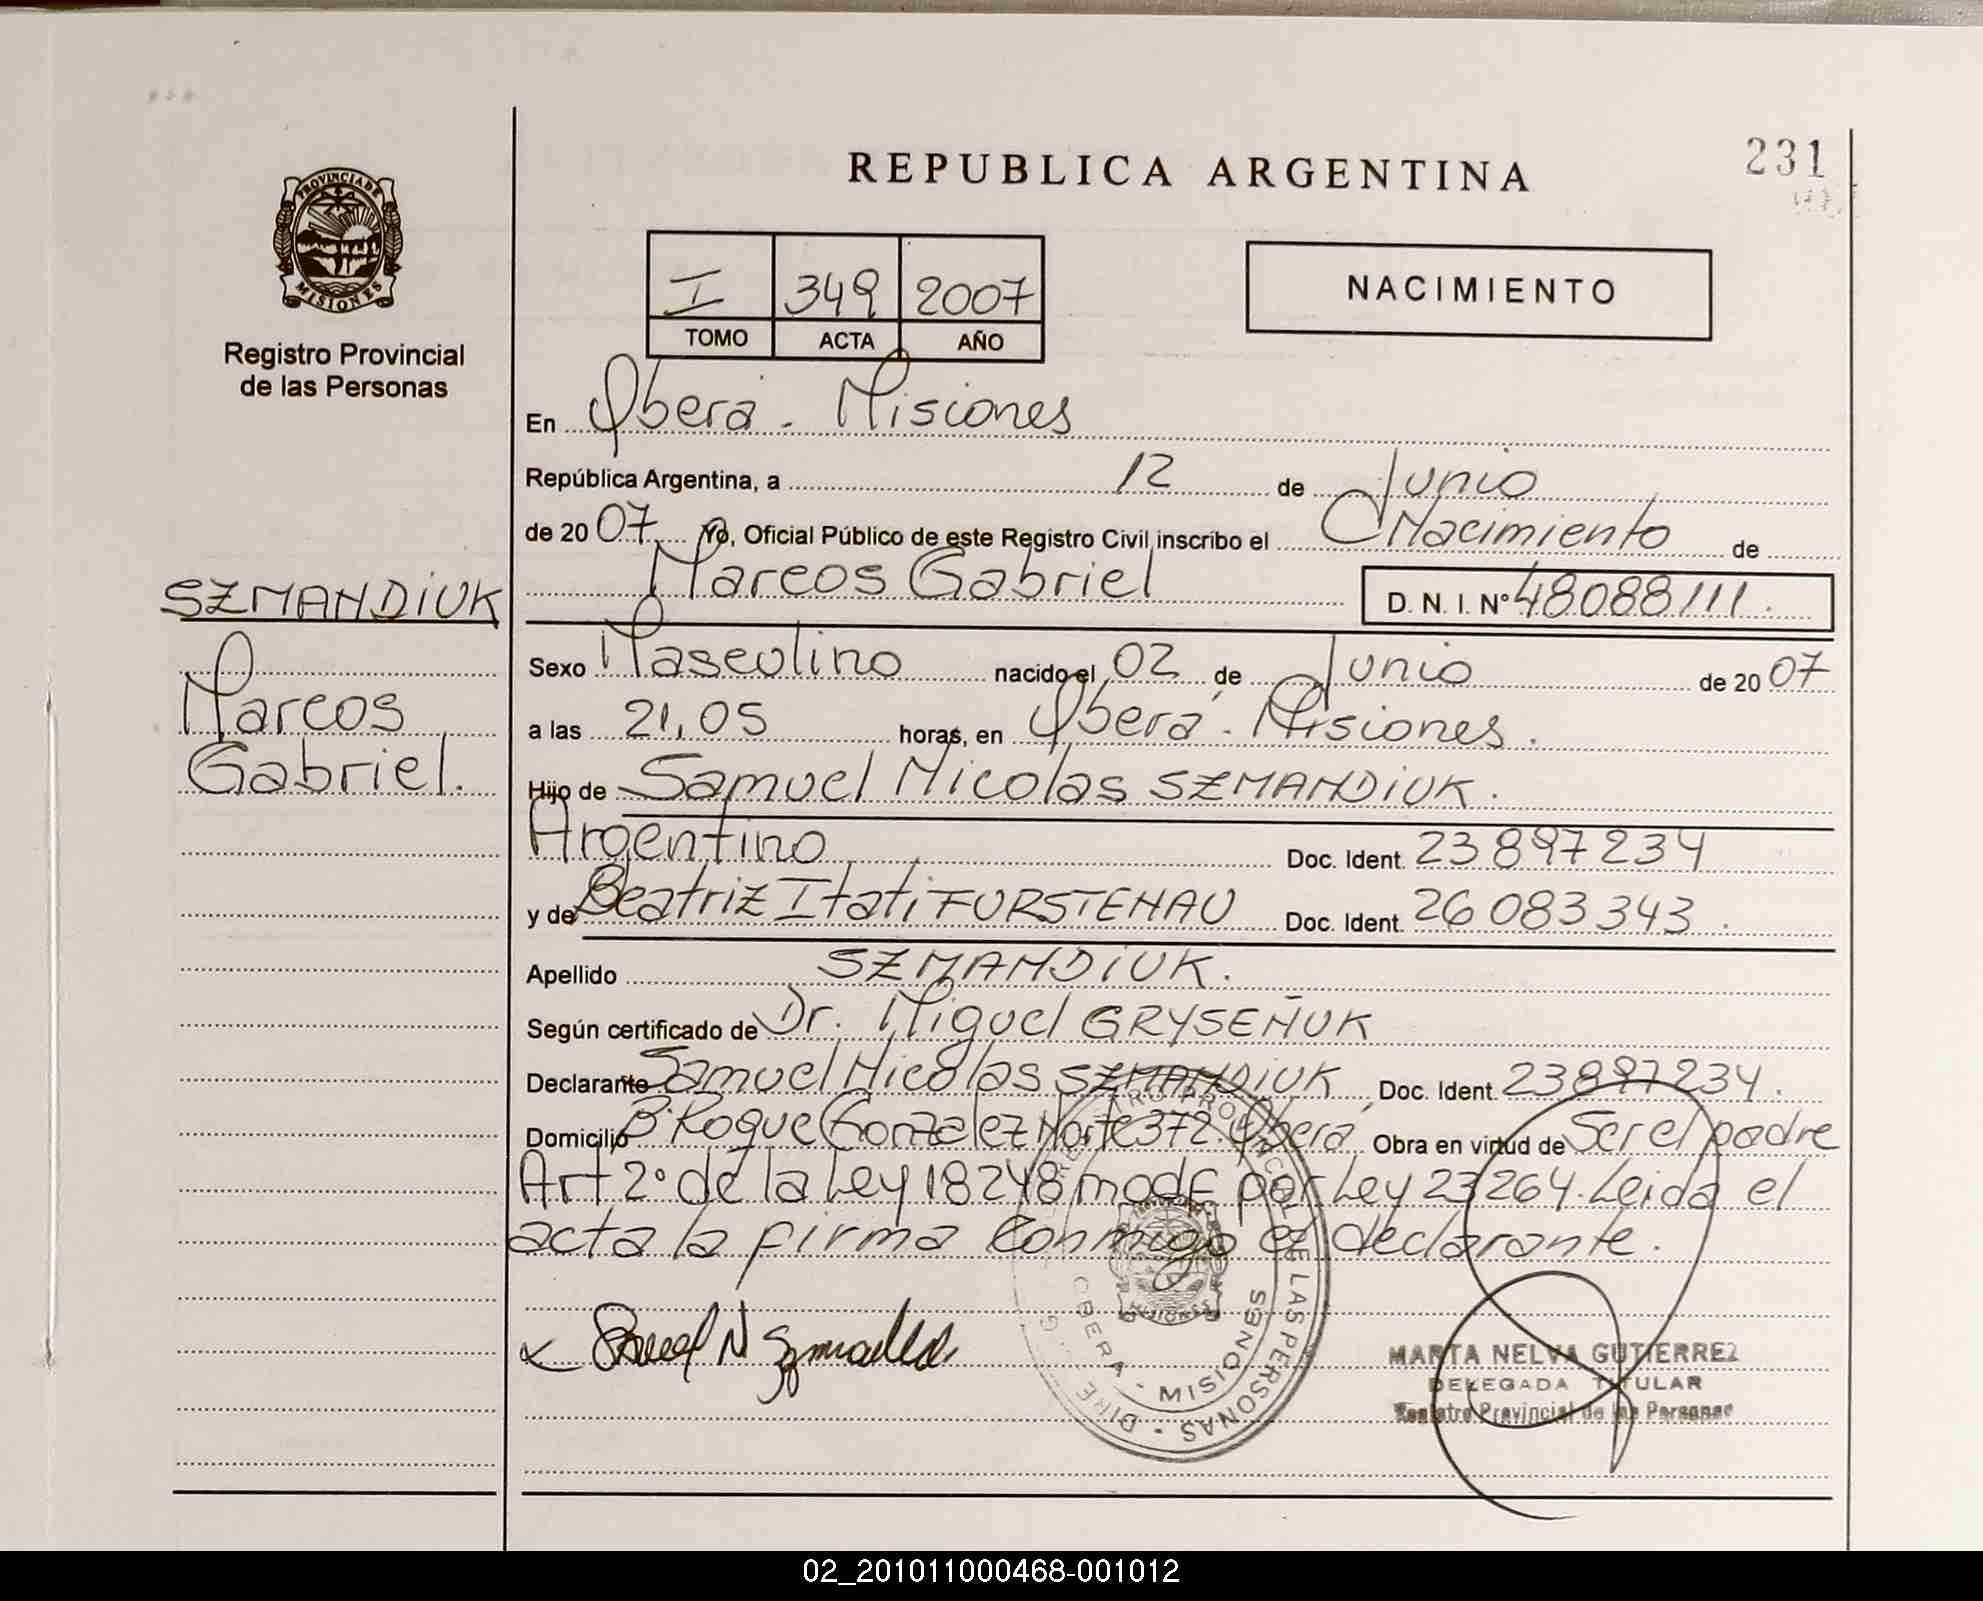 231
REPUBLICA ARGENTINA
PROVINCIA DE
MISIONES
Registro Provincial
de las Personas
I 349 2007
TOMO ACTA AÑO
NACIMIENTO
En Oberá - Misiones
República Argentina, a 12 de Junio
de 2007 Yo, Oficial Público de este Registro Civil inscribo el Nacimiento de
Marcos Gabriel D. N. I. Nº 48088111.
SZMANDiUK
Marcos
Gabriel.
Sexo Masculino nacido el 02 de Junio de 2007
a las 21,05 horas, en Oberá - Misiones.
Hijo de Samuel Nicolas SZMANDiUK.
Argentino Doc. Ident. 23897234
y de Beatriz Itati FURSTENAU Doc. Ident. 26083343.
Apellido SZMANDiUK.
Según certificado de Dr. Miguel GRYSEÑUK
Declarante Samuel Nicolas SZMANDiUK Doc. Ident. 23897234.
Domicilio B. Roque Gonzalez Norte 372. Oberá, Obra en virtud de Ser el padre
Art 2º de la Ley 18248 modf por Ley 23264. Leida el
acta la firma conmigo el declarante.
OBERA - MISIONES
MARTA NELVA GUTIERREZ
DELEGADA TITULAR
Registro Provincial de las Personas
02_201011000468-001012